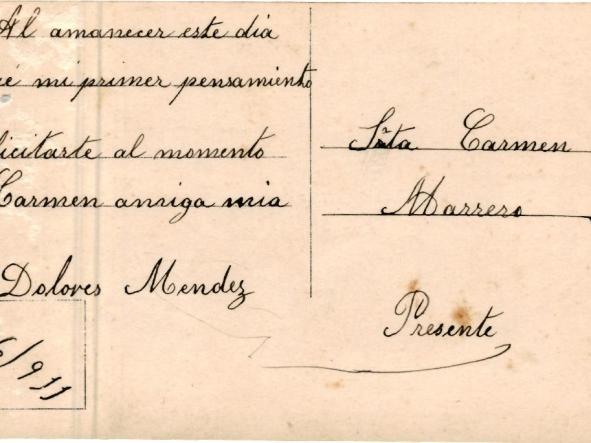 Al amanecer este dia
mi primer pensamiento
licitarte al momento
Carmen amiga mia
Dolores Mendez
6/911
Srta Carmen
Marrero
Presente